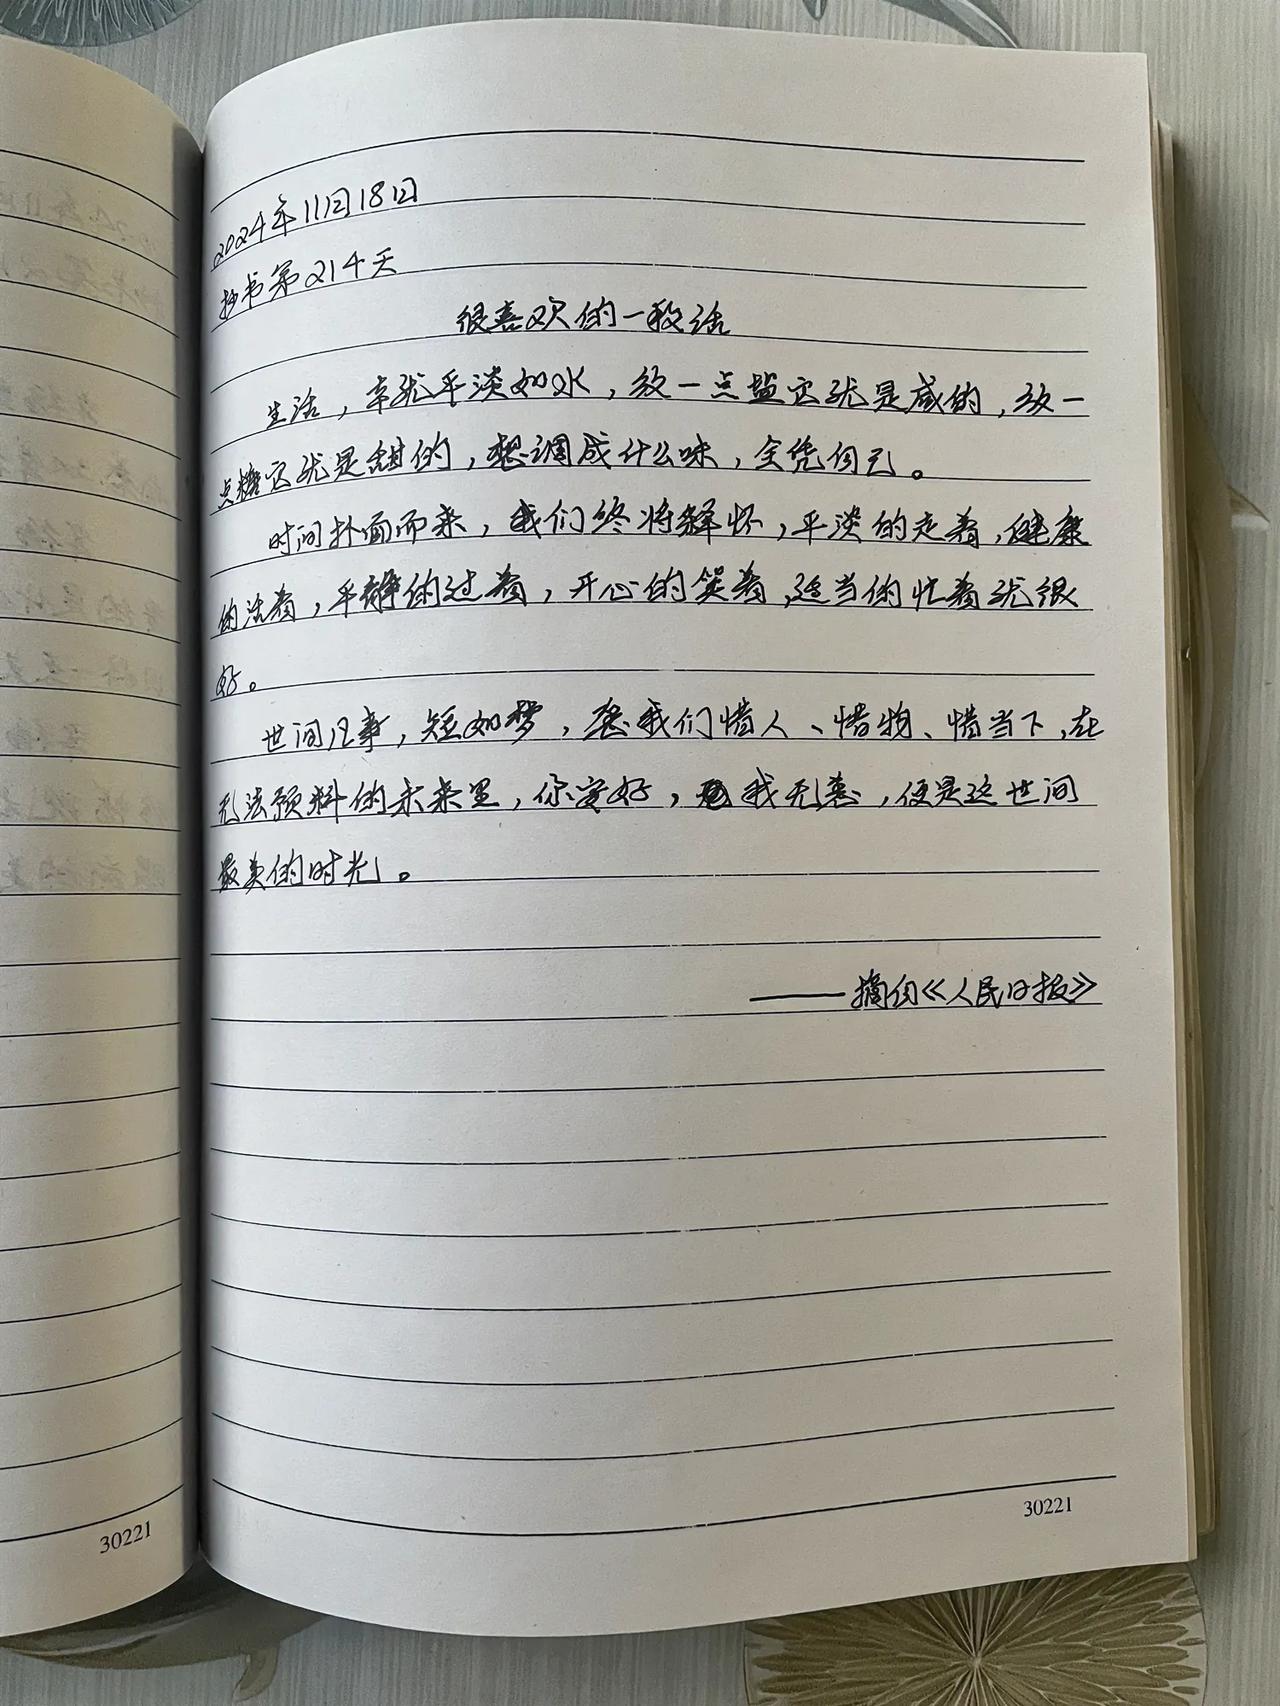 2024年11月18日
抄书第214天
很喜欢的一段话
生活，本就平淡如水，放一点盐它就是咸的，放一
点糖它就是甜的，想调成什么味，全凭自己。
时间扑面而来，我们终将释怀，平淡的走着，健康
的活着，平静的过着，开心的笑着，适当的忙着就很
好。
世间凡事，短如梦，愿我们惜人、惜物、惜当下，在
无法预料的未来里，你安好，我无恙，便是这世间
最美的时光。
——摘自《人民日报》
30221
30221